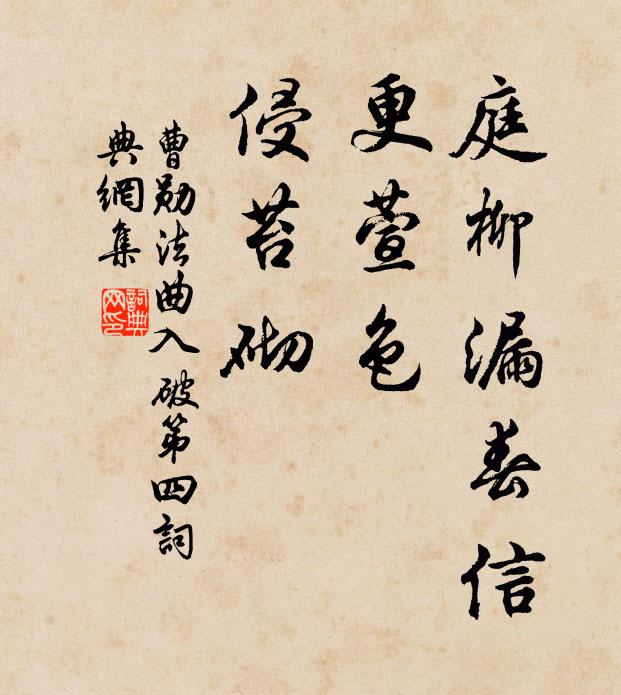 庭柳漏春信
更萱色
侵苔砌
曹勋法曲入破第四詞
典網集
詞典网印